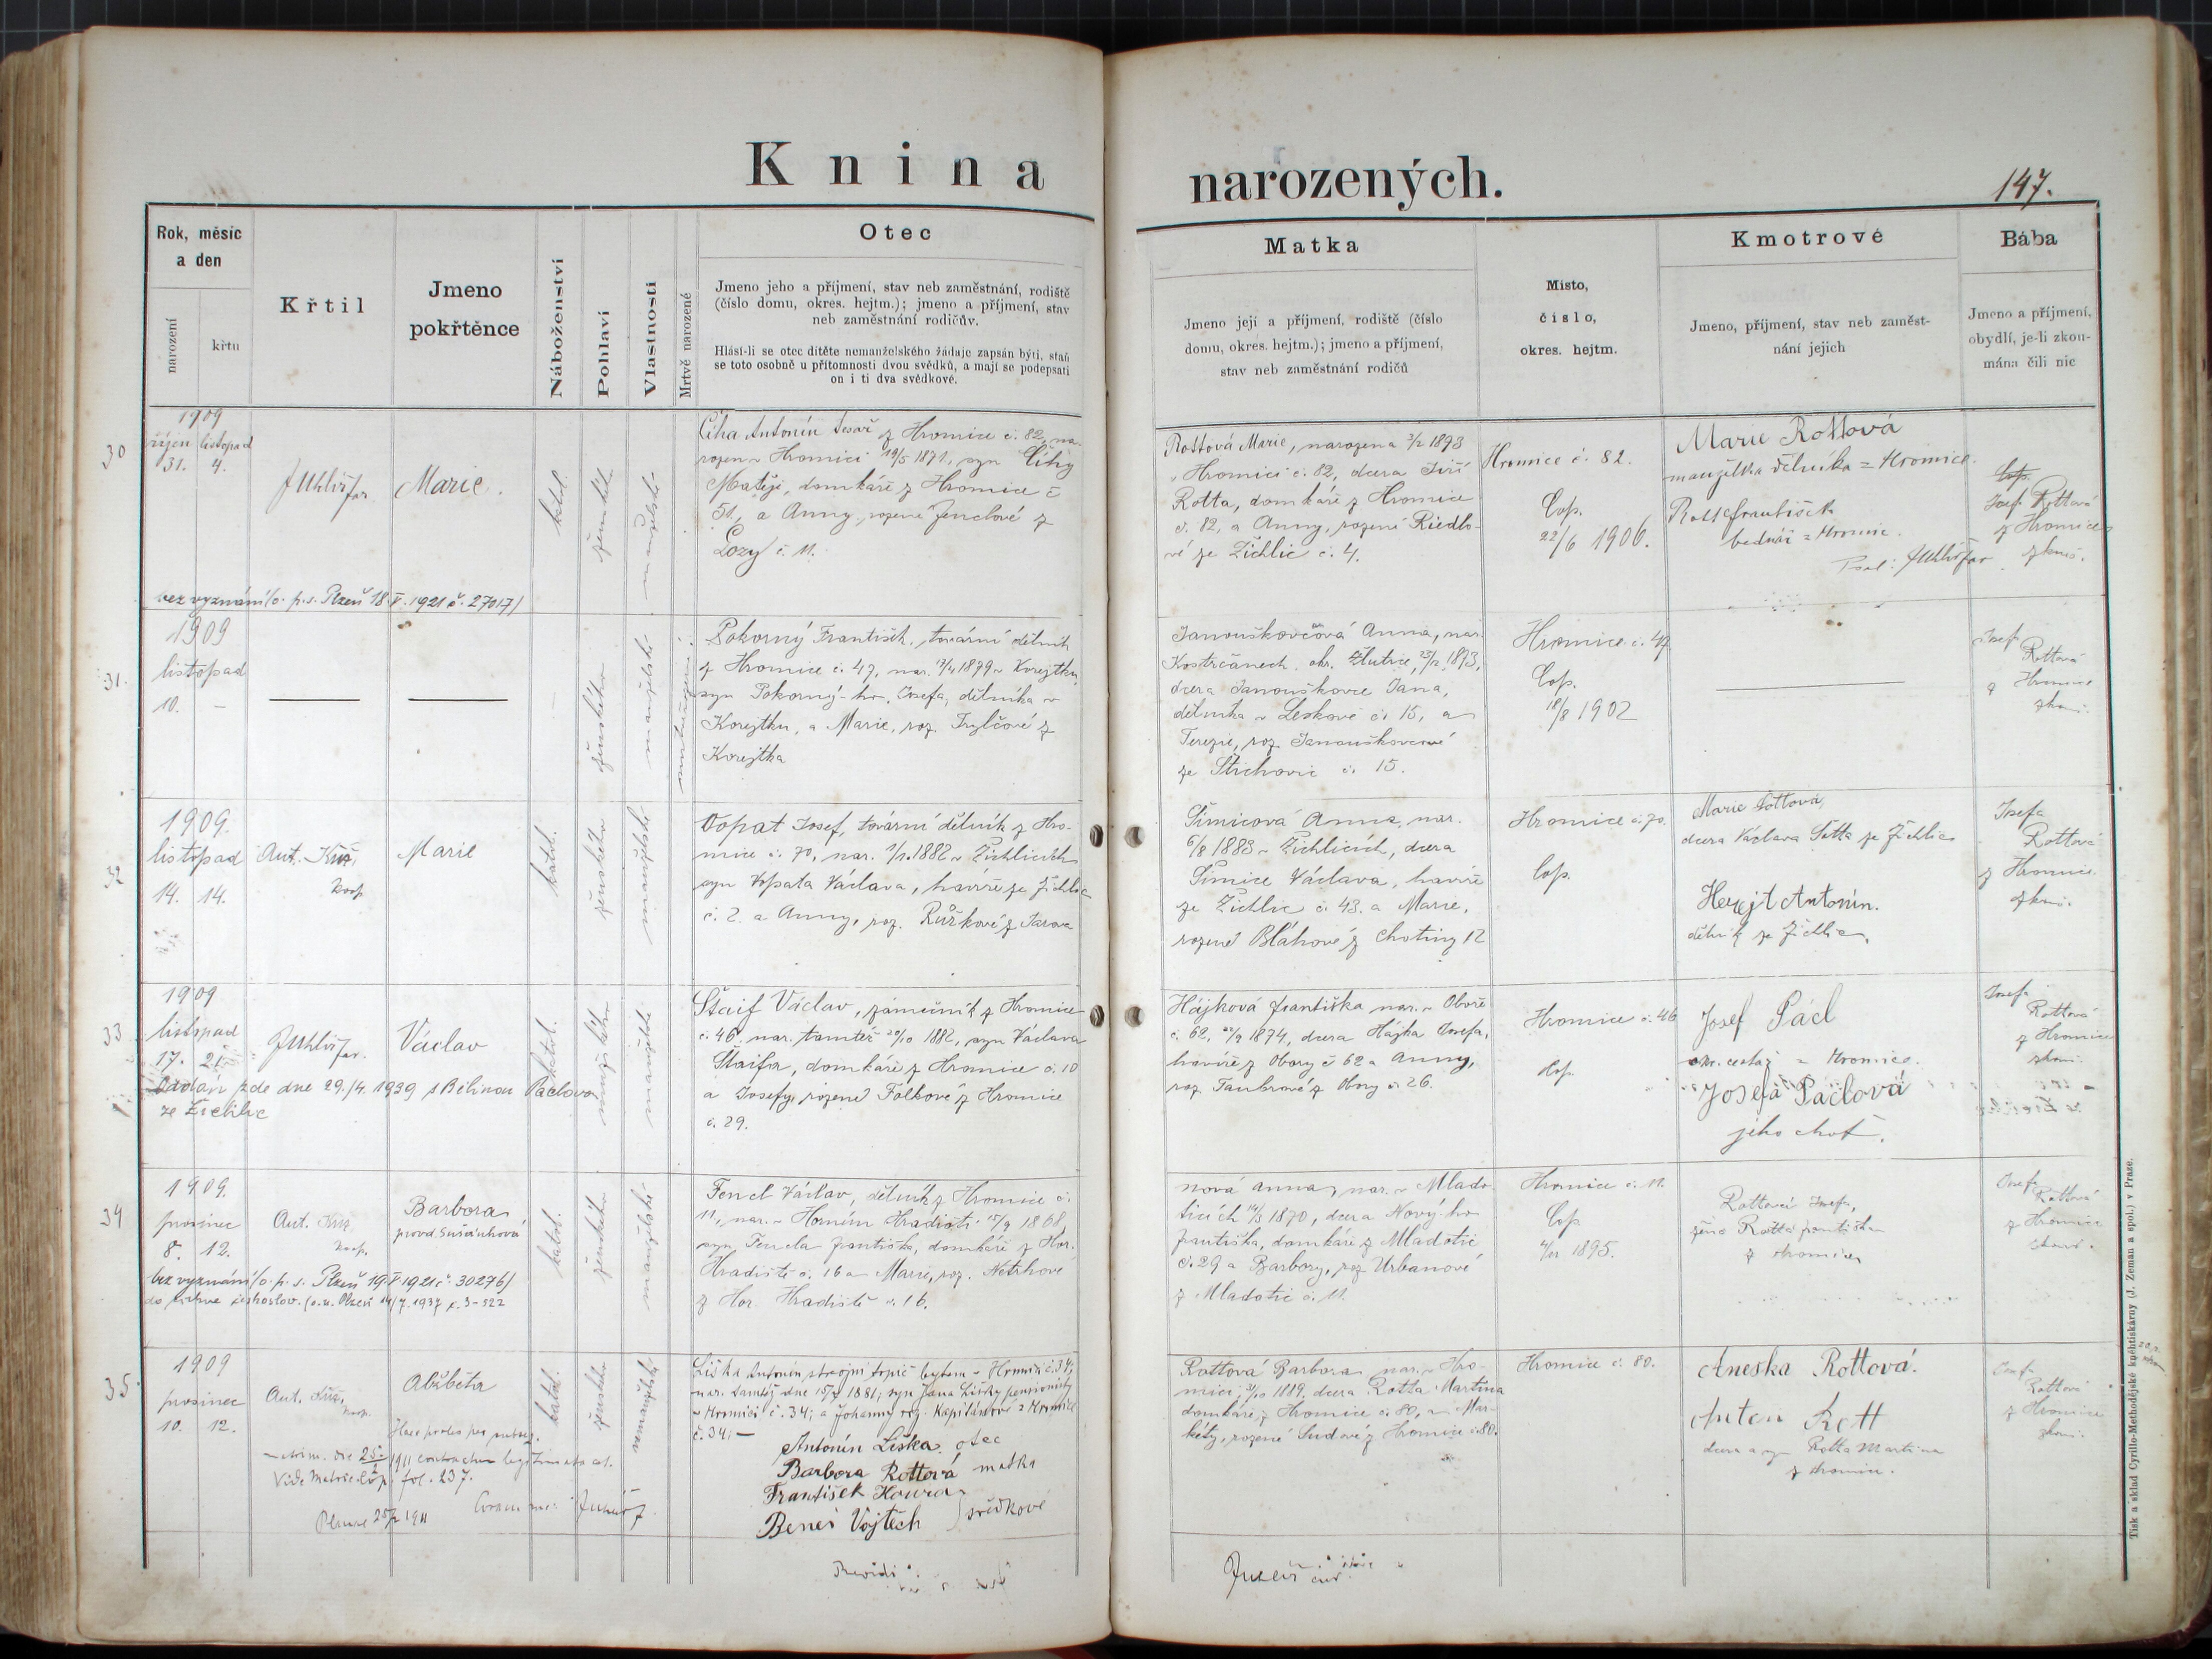 Knina
narozených.
147.
Rok, měsíc
a den
narození
křtu
Křtil
Jmeno
pokřtěnce
Náboženství
Pohlaví
Vlastnosti
Mrtvě narozené
Otec
Jmeno jeho a příjmení, stav neb zaměstnání, rodiště
(číslo domu, okres. hejtm.); jmeno a příjmení, stav
neb zaměstnání rodičův.
Hlásí-li se otec dítěte nemanželského žádaje zapsán býti, staň
se toto osobně u přítomnosti dvou svědků, a mají se podepsati
on i ti dva svědkové.
Matka
Jmeno její a příjmení, rodiště (číslo
domu, okres. hejtm.); jmeno a příjmení,
stav neb zaměstnání rodičů
Místo,
číslo,
okres. hejtm.
Kmotrové
Jmeno, příjmení, stav neb zaměst-
nání jejich
Bába
Jmeno a příjmení,
obydlí, je-li zkou-
mána čili nic
30
1909
říjen listopad
31. 4.
Marie.
katol.
ženského
manželské
Cíha Antonín tesař z Hromice č. 82, na-
rozen v Hromici 19/5 1871, syn Cíhy
Matěje, domkáře z Hromice č
51, a Anny, rozené Jenclové z
Lozy č. 11.
Rottová Marie, narozena
v Hromici č. 82, dcera Jiří
Rotta, domkáře z Hromice
č. 82, a Anny, rozené Riedlo-
vé ze Žichlic č. 4.
Hromice č. 82.
Cop.
22/6 1906.
Marie Rottová
manželka dělníka z Hromice.
Rott František
bednář z Hromic.
Josefa Rottová
z Hromice
zkouš.
bez vyznání (o. p. s. Plzeň 18.V.1921 č. 27017)
31.
1909
listopad
10. –
ženského
manželské
Pokorný František, tovární dělník
z Hromice č. 47, nar. 1879 v Korejtku,
syn Pokorný-ho Josefa, dělníka v
Korejtku, a Marie, roz. Trylčové z
Korejtka
Janouškovcová Anna, nar.
Kostrčanech, okr. Žlutice, 1873,
dcera Janouškovce Jána,
dělníka v Leskové č. 15, a
Terezie, roz. Janouškovcové
ze Štichovic č. 15.
Hromice č. 47
Cop.
18/8 1902
Josefa
Rottová
z Hromice
zkouš.
32
1909.
listopad
14. 14.
Ant. Kříž,
koop.
Marie
katol.
ženského
manželské
Vopat Josef, tovární dělník z Hro-
mice č. 70, nar. 1882 v Žichlicích
syn Vopata Václava, havíře ze Žichlic
č. 2. a Anny, roz. Růžkové z Jarova
Šimicová Anna, nar.
6/8 1883 v Žichlicích, dcera
Šimice Václava, havíře
ze Žichlic č. 43. a Marie,
rozené Bláhové z Chotiny 12
Hromice č. 70.
Cop.
Marie
dcera Václava ze Žichlic
Herejt Antonín.
dělník ze Žichlic.
Josefa
Rottová
z Hromice
zkouš.
33
1909
listopad
17. 21.
Václav
katol.
mužského
manželské
Štaif Václav, zámečník z Hromice
č. 46. nar. tamtéž 20/10 1882, syn Václava
Štaifa, domkáře z Hromice č. 10
a Josefy, rozené Folkové z Hromice
č. 29.
Hájková Františka nar. v Oboře
č. 62, 1874, dcera Hájka Josefa,
havíře z Obory č 62 a Anny,
roz. Taubrové z Obory č. 26.
Hromice č. 46
Cop.
Josef Pácl
z Hromice.
Josefa Páclová
jeho choť.
Josefa
Rottová
z Hromice
zkouš.
Oddán zde dne 29./4. 1939 s Bělinou Páclovou
ze Žichlic
34
1909.
prosinec
8. 12.
Ant. Kříž
koop.
Barbora
katol.
ženského
manželské
Fencl Václav, dělník z Hromice č.
11, nar. v Horním Hradišti 15/9 1868,
syn Fencla Františka, domkáře z Hor.
Hradiště č. 16 a Marie, roz. Netrhové
z Hor. Hradiště č. 16.
Nová Anna, nar. v Mlado-
ticích 1870, dcera Nový-ho
Františka, domkáře z Mladotic
č. 29 a Barbory, roz Urbanové
z Mladotic č. 11.
Hromice č. 11.
Cop
1895.
Rottová Josefa,
žena Rotta Františka
z Hromice
Josefa
Rottová
z Hromice
zkouš.
bez vyznání (o. p. s. Plzeň 19.V 1921 č. 30276)
do církve českoslov. (o. u. Plzeň 14/7. 1937 č. 3-522
35.
1909
prosinec
10. 12.
Ant. Kříž,
koop.
Alžběta
katol.
ženského
nemanželský
Liška Antonín strojní topič bytem v Hromici č. 34,
nar. tamtéž dne 1881; syn Jana Lišky pensionisty
v Hromici č. 34; a Johanny roz. Kapitánové z Hromice
č. 34; –
Antonín Liška otec
Barbora Rottová matka
František Houra
Beneš Vojtěch svědkové
Rottová Barbora nar. v Hro-
mici, 1889, dcera Rotta Martina
domkáře z Hromice č. 80, a Mar-
kéty, rozené Sudové z Hromice č. 80.
Hromice č. 80.
Aneska Rottová.
Anton Rott
dcera a syn Rotta Martina
z Hromic.
Josefa
Rottová
z Hromice
zkouš.
Haec proles per subseq.
1911 contractum legitimata est.
Vide Matric. Cop. fol. 237.
Coram me:
Tisk a sklad Cyrillo-Methodějské knihtiskárny (J. Zeman a spol.) v Praze.